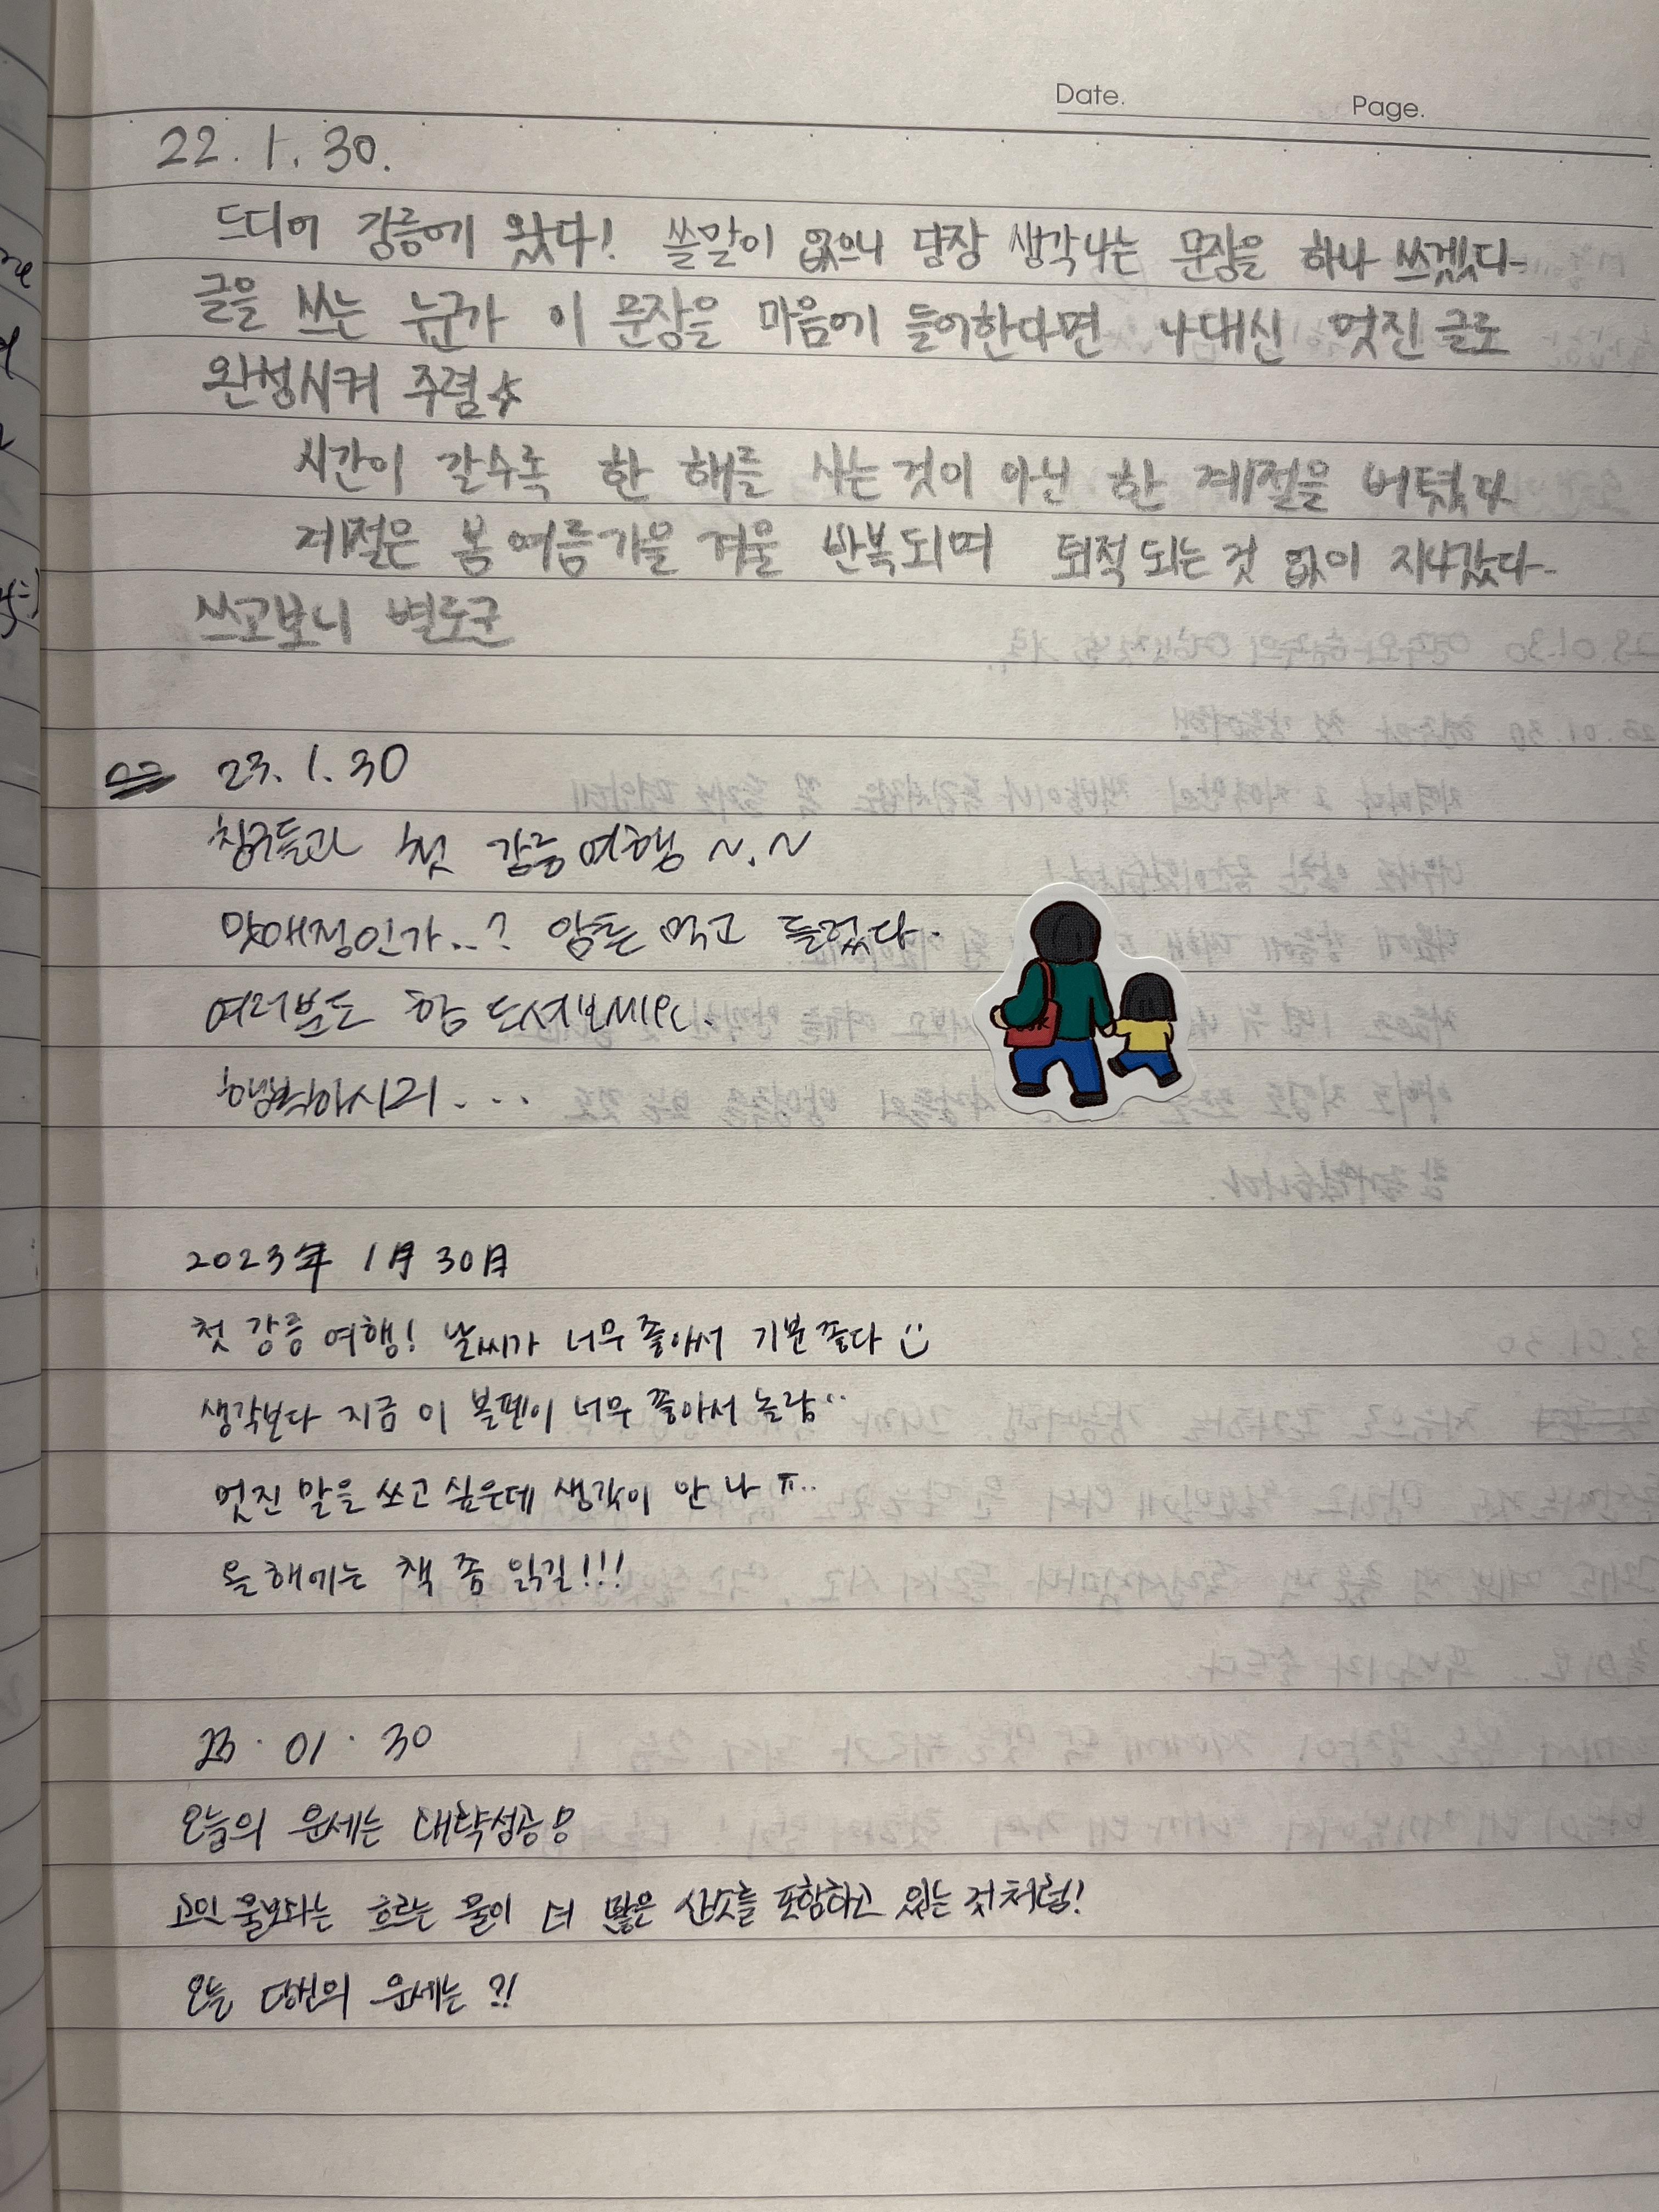 Date.
Page.
22. 1. 30.
드디어 강릉에 왔다! 쓸말이 없으니 당장 생각나는 문장을 하나 쓰겠다.
글을 쓰는 누군가 이 문장을 마음에 들어한다면 나대신 멋진 글로
완성시켜 주렴☆
시간이 갈수록 한 해를 사는 것이 아닌 한 계절을 버텼다
계절은 봄 여름 가을 겨울 반복되며 퇴적 되는 것 없이 지나갔다.
쓰고보니 별로군
23. 1. 30
칭구들과 첫 강릉여행 ~.~
맛애정인가..? 암튼 먹고 들렀다.
여러분도 함 드셔보세요.
행복하시리...
2023年 1月 30日
첫 강릉 여행! 날씨가 너무 좋아서 기분좋다
생각보다 지금 이 볼펜이 너무 좋아서 놀람..
멋진 말을 쓰고 싶은데 생각이 안 나 ㅠ..
올해에는 책 좀 읽길!!!
23. 01. 30
오늘의 운세는 대탁성공!
고인 물보다는 흐르는 물이 더 많은 산소를 포함하고 있는 것처럼!
오늘 당신의 운세는?!